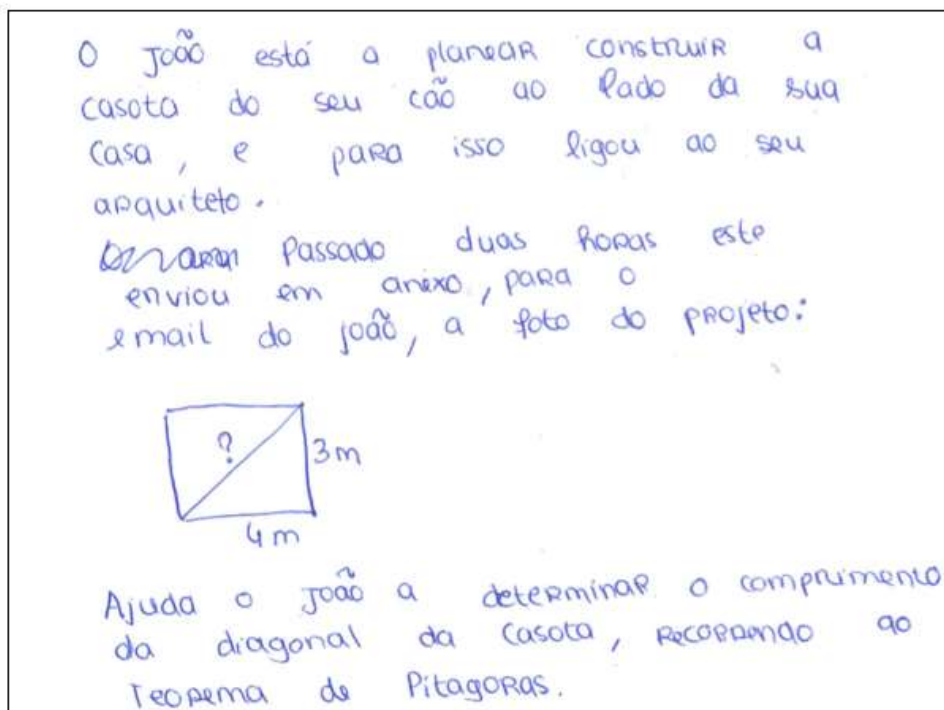 O João está a planear construir a
casota do seu cão ao lado da sua
casa, e para isso ligou ao seu
arquiteto.
Passado duas horas este
enviou em anexo, para o
email do joão, a foto do projeto:
?
3m
4m
Ajuda o João a determinar o comprimento
da diagonal da casota, recorrendo ao
Teorema de Pitagoras.